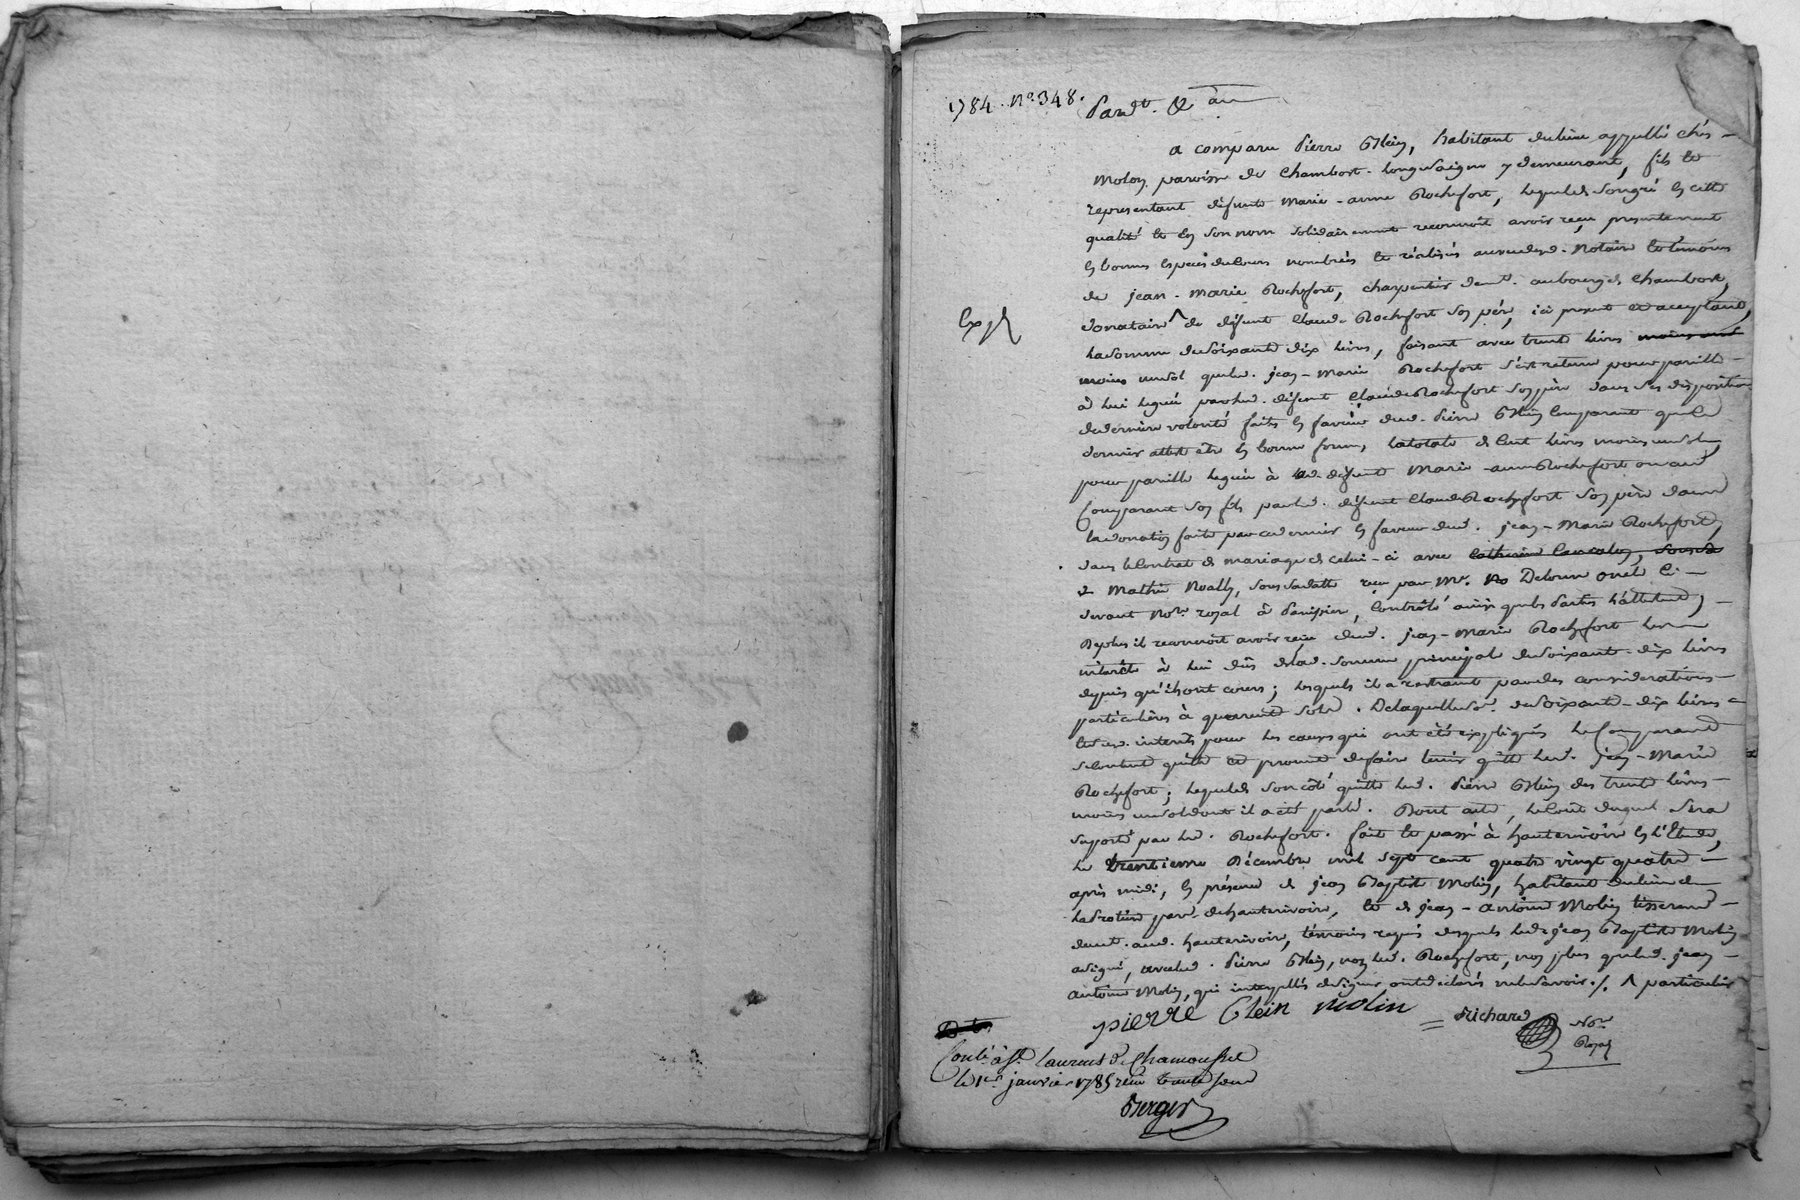 1784. No. 348. Pardt. &
a comparu Pierre Chein, habitant du lieu appellé chés
Molon paroisse de Chambost-longuesaigne y demeurant, fils et
representant defunte Marie-anne Rochefort, lequel de son gré en cette
qualité et en son nom solidairement reconnoit avoir reçu presentement
en bonnes especes de cours nombrées et réalisées au vu desd. Notaire et temoins
de jean-Marie Rochefort, charpentier demt. au bourg de Chambost,
donataire ^ de defunt Claude Rochefort son pere, ici present et acceptant,
la somme de soixante dix livres, faisant avec trente livres
moins un sol que led. jean-Marie Rochefort s'est retenu pour pareille
à lui leguée par led. defunt Claude Rochefort son père dans ses dispositions
de derniere volonté faites en faveur dud. Pierre Chein Comparant que ce
dernier atteste être en bonne forme, la totale de Cent livres moins un sol
pour pareille leguée à lad. defunte Marie-anne Rochefort ou aud.
Comparant son fils par led. defunt Claude Rochefort son père dans
la donation faite par ce dernier en faveur dud. jean-Marie Rochefort,
dans le Contrat de mariage de celui-ci avec
Mathie Noally, sous sa datte reçu par Me. ci-
devant Nore. royal à Panissieres, Contrôlé ainsi que les Parties l'attestent;
Deplus il reconnoit avoir reçu dud. jean-Marie Rochefort les
interêts à lui dûs de lad. somme principale de soixante-dix livres
depuis qu'ils ont cours; lesquels il a restraint par des considerations
particulières à quarente sols. De laquelle so. de soixante-dix livres
et desd. interêts pour les causes qui ont été expliquées le Comparant
se contente quitte et promet de faire tenir quitte led. jean-Marie
Rochefort; lequel de son côté quitte led. Pierre Chein des trente livres
moins un sol dont il a été parlé. Dont acte, le Coût duquel sera
suporté par led. Rochefort. fait et passé à hauterivoire en l'Etude,
le trentieme Décembre mil sept cent quatre vingt quatre
après midi, en présence de jean Baptiste Molin, habitant du lieu de
par. de hauterivoire, et de jean-antoine Molin tisserand
demt. aud. hauterivoire, témoins requis desquels led. jean Baptiste Molin
a signé, avec led. Pierre Chein, non led. Rochefort, non plus que led. jean-
antoine Molin, qui interpellés de signer ont declarés ne le savoir ./. ^ particulier
pierre Chein Molin Richard Nore. Royal
Conlé à St. laurent de Chamousset
le 1er janvier 1785 reçu trente sous
Berger